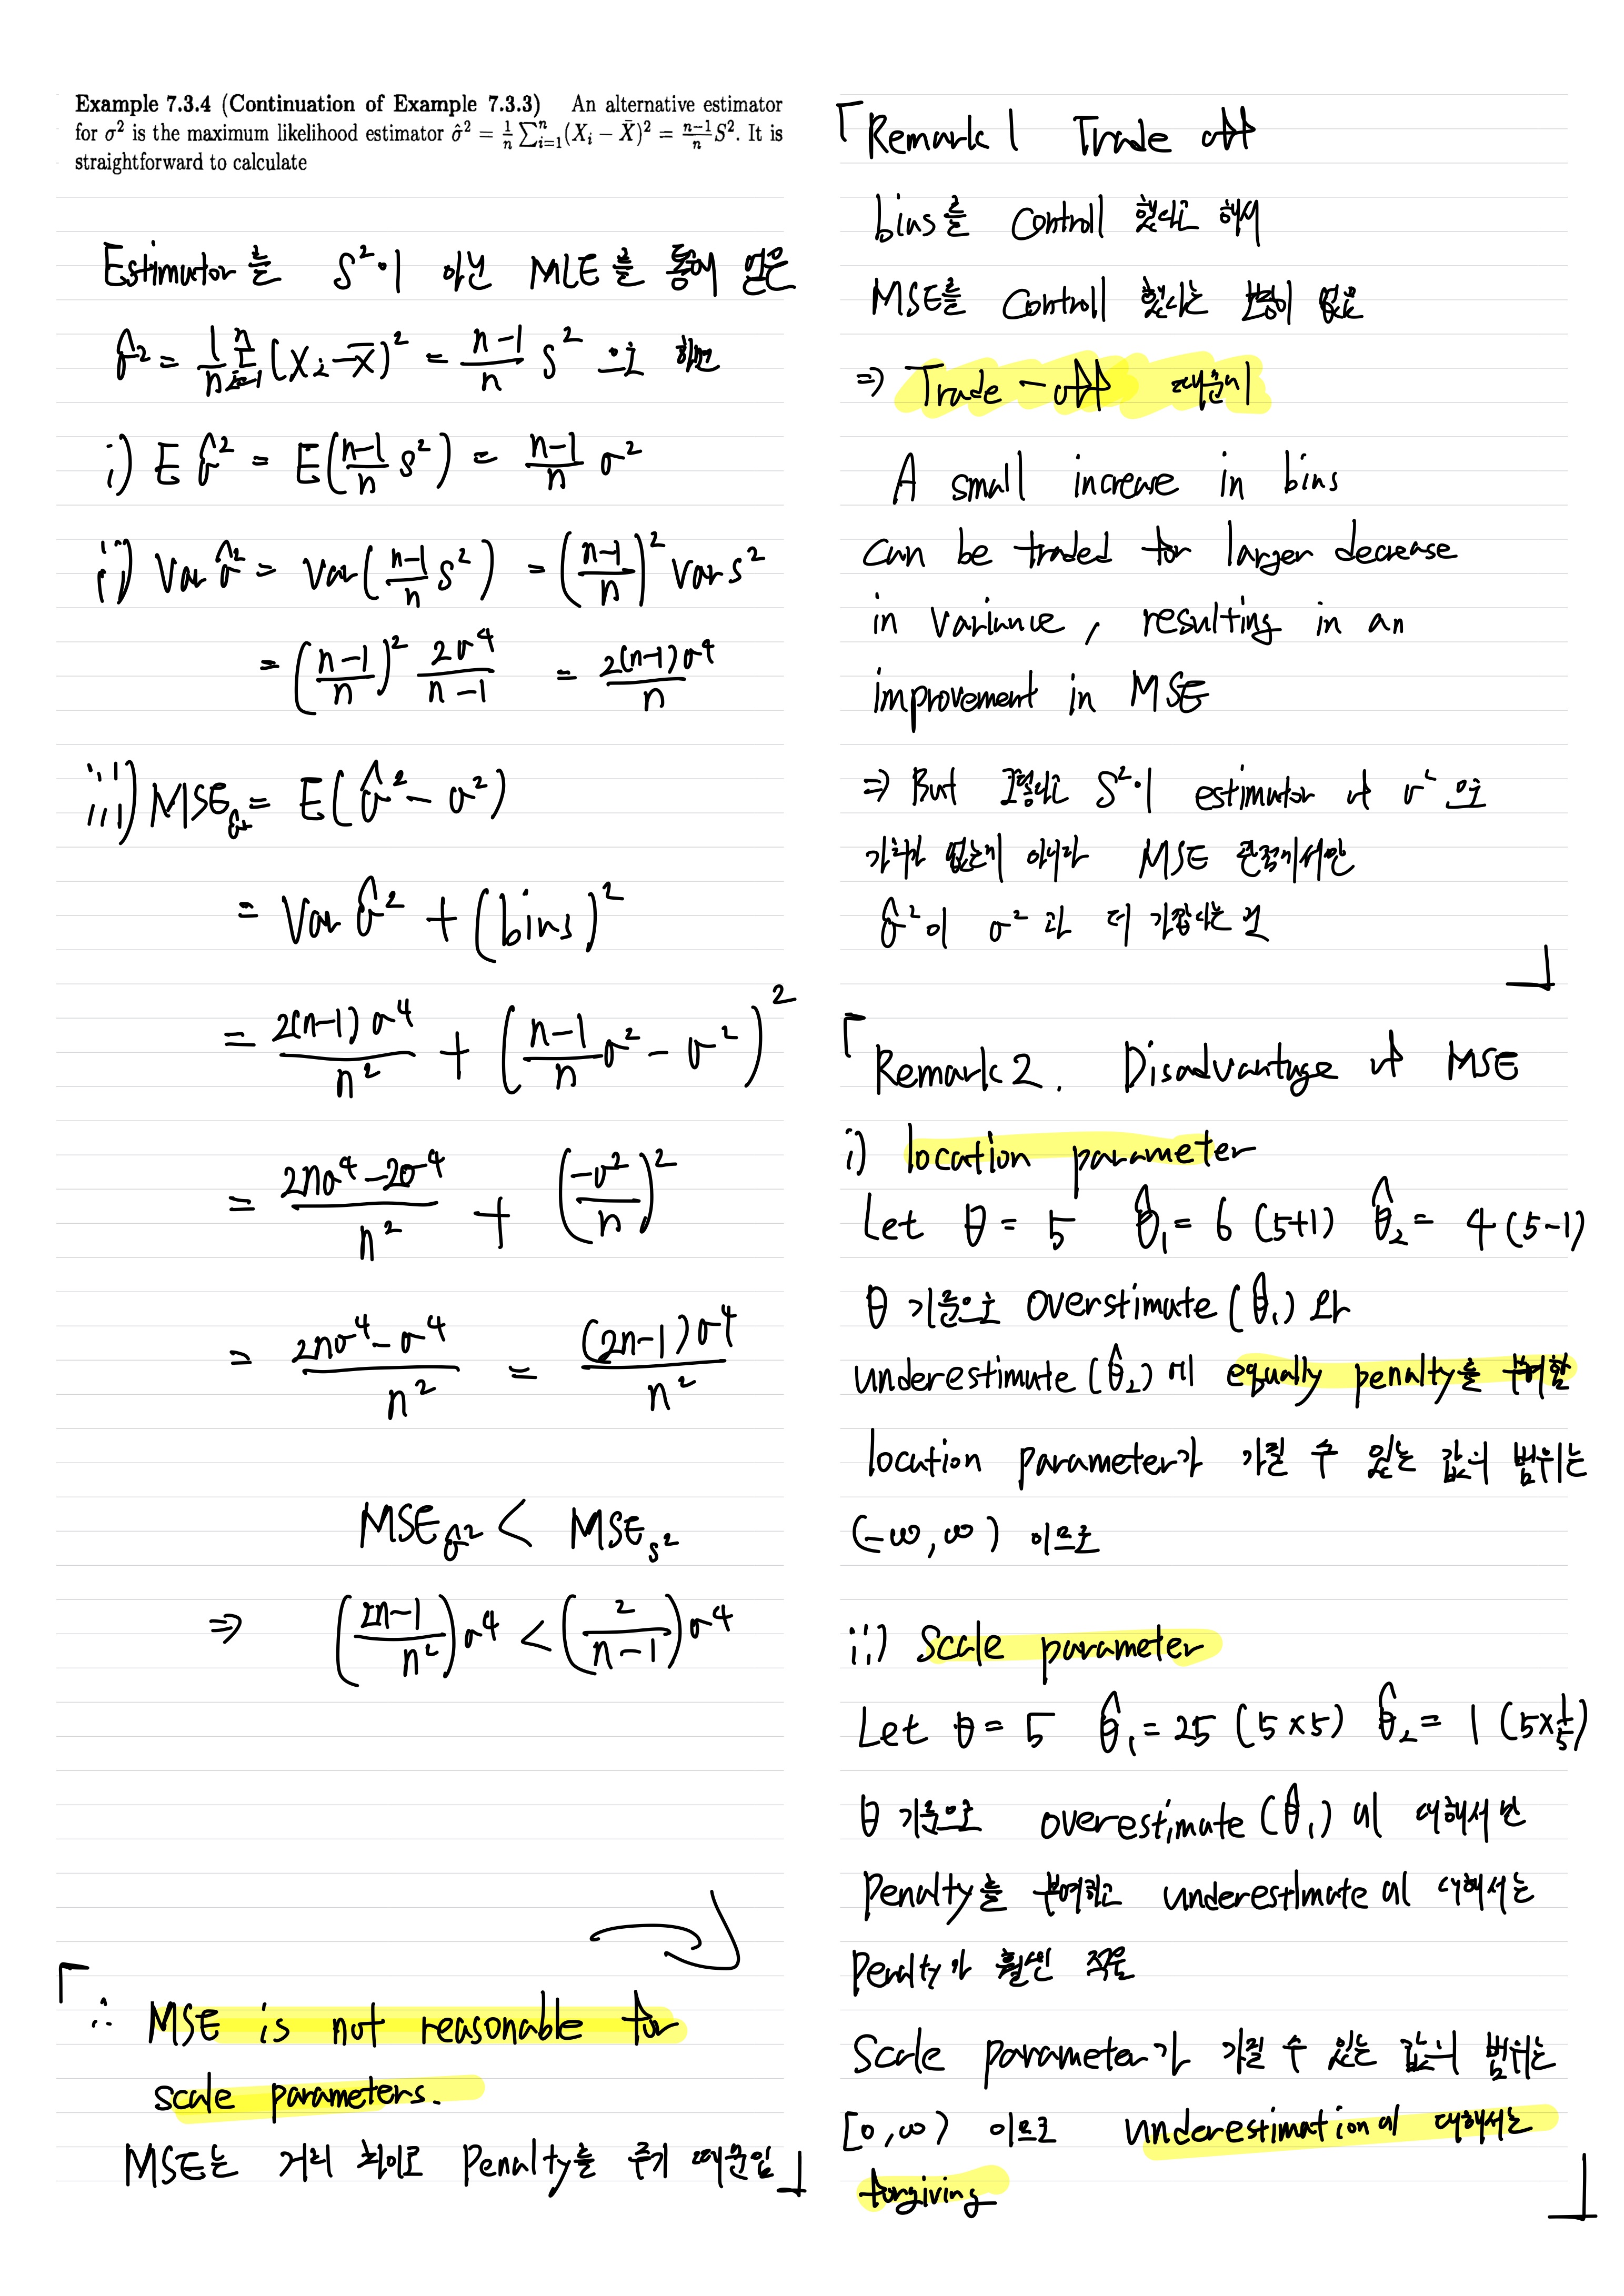 Example 7.3.4 (Continuation of Example 7.3.3) An alternative estimator
for σ² is the maximum likelihood estimator σ̂² = 1/n ∑ⁿᵢ₌₁(Xᵢ − X̄)² = n−1/n S². It is
straightforward to calculate
Estimator를 S²이 아닌 MLE를 통해 얻은
σ̂² = 1/n ∑ⁿᵢ₌₁(Xᵢ−X̄)² = n−1/n S² 으로 하면
i) E σ̂² = E(n−1/n S²) = n−1/n σ²
ii) Var σ̂² = Var(n−1/n S²) = (n−1/n)² Var S²
= (n−1/n)² 2σ⁴/n−1 = 2(n−1)σ⁴/n
iii) MSE_σ̂² = E(σ̂² − σ²)
= Var σ̂² + (bias)²
= 2(n−1)σ⁴/n² + (n−1/n σ² − σ²)²
= 2nσ⁴−2σ⁴/n² + (−σ²/n)²
= 2nσ⁴−σ⁴/n² = (2n−1)σ⁴/n²
MSE_σ̂² < MSE_S²
⇒ (2n−1/n²)σ⁴ < (2/n−1)σ⁴
「∴ MSE is not reasonable for
scale parameters.
MSE는 거리 차이로 Penalty를 주기 때문임」
「Remark 1 Trade off
bias를 Control 했다고 해서
MSE를 Control 했다는 보장이 없음
⇒ Trade-off 때문에
A small increase in bias
can be traded for larger decrease
in variance, resulting in an
improvement in MSE
⇒ But 그렇다고 S²이 estimator of σ² 으로
가치가 없는게 아니라 MSE 관점에서만
σ̂²이 σ²과 더 가깝다는 것
」
「Remark 2. Disadvantage of MSE
i) location parameter
Let θ = 5 θ̂₁ = 6 (5+1) θ̂₂ = 4 (5−1)
θ 기준으로 overstimate (θ̂₁) 와
underestimate (θ̂₂) 에 equally penalty를 부여함
location parameter가 가질 수 있는 값의 범위는
(−∞, ∞) 이므로
ii) Scale parameter
Let θ = 5 θ̂₁ = 25 (5×5) θ̂₂ = 1 (5×1/5)
θ 기준으로 overestimate (θ̂₁) 에 대해서만
Penalty를 부여하고 underestimate에 대해서는
Penalty가 훨씬 적음
Scale parameter가 가질 수 있는 값의 범위는
[0, ∞) 이므로 underestimation에 대해서는
forgiving
」